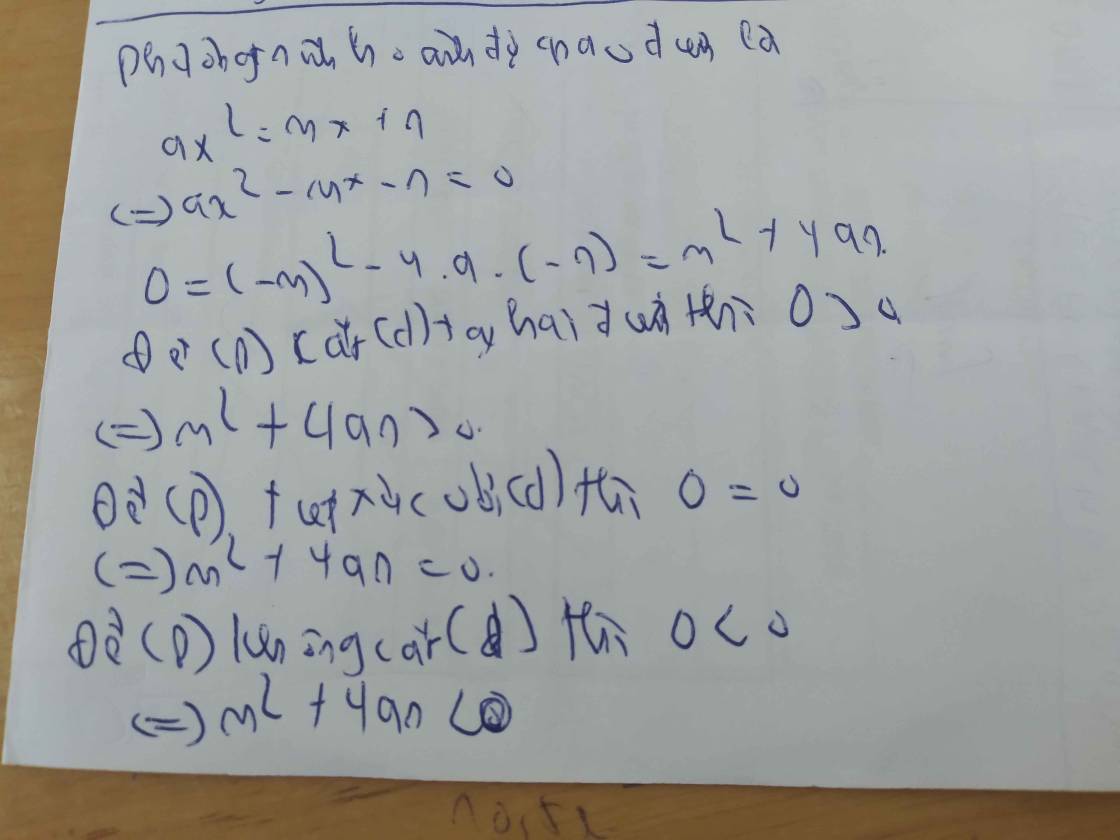 Phương trình hoành độ giao điểm là
ax² = mx + n
(=) ax² - mx - n = 0
Δ = (-m)² - 4.a.(-n) = m² + 4an.
Để (P) cắt (d) tại hai điểm thì Δ > 0
(=) m² + 4an > 0.
Để (P) tiếp xúc với (d) thì Δ = 0
(=) m² + 4an = 0.
Để (P) không cắt (d) thì Δ < 0
(=) m² + 4an < 0